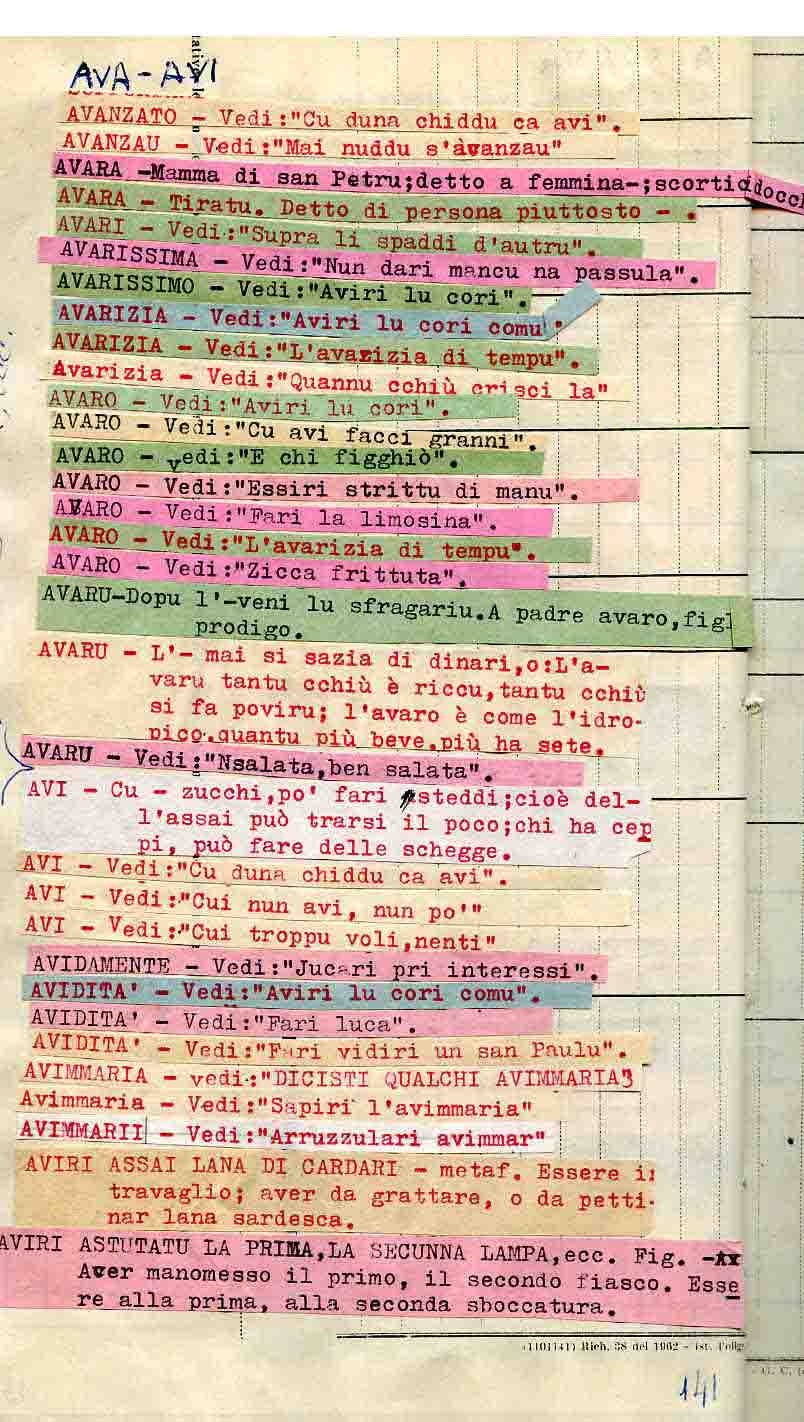 AVA-AVI
AVANZATO - Vedi:"Cu duna chiddu ca avi".
AVANZAU - Vedi:"Mai nuddu s'avanzau"
AVARA -Mamma di san Petru;detto a femmina-;scorticadocch
AVARA - Tiratu. Detto di persona piuttosto - .
AVARI - Vedi:"Supra li spaddi d'autru".
AVARISSIMA - Vedi:"Nun dari mancu na passula".
AVARISSIMO - Vedi:"Aviri lu cori".
AVARIZIA - Vedi:"Aviri lu cori comu".
AVARIZIA - Vedi:"L'avarizia di tempu".
Avarizia - Vedi:"Quannu cchiù crisci la"
AVARO - Vedi:"Aviri lu cori".
AVARO - Vedi:"Cu avi facci granni".
AVARO - vedi:"E chi figghiò".
AVARO - Vedi:"Essiri strittu di manu".
AVARO - Vedi:"Fari la limosina".
AVARO - Vedi:"L'avarizia di tempu".
AVARO - Vedi:"Zicca frittuta".
AVARU-Dopu l'-veni lu sfragariu.A padre avaro,figl
prodigo.
AVARU - L'- mai si sazia di dinari,o:L'a-
varu tantu cchiù è riccu,tantu cchiù
si fa poviru; l'avaro è come l'idro-
pico.quantu più beve.più ha sete.
AVARU - Vedi:"Nsalata,ben salata".
AVI - Cu - zucchi,po' fari steddi;cioè del-
l'assai può trarsi il poco;chi ha cep
pi, può fare delle schegge.
AVI - Vedi:"Cu duna chiddu ca avi".
AVI - Vedi:"Cui nun avi, nun po'"
AVI - Vedi:"Cui troppu voli,nenti"
AVIDAMENTE - Vedi:"Jucari pri interessi".
AVIDITA' - Vedi:"Aviri lu cori comu".
AVIDITA' - Vedi:"Fari luca".
AVIDITA' - Vedi:"Fari vidiri un san Paulu".
AVIMMARIA - vedi:"DICISTI QUALCHI AVIMMARIA3
Avimmaria - Vedi:"Sapiri l'avimmaria"
AVIMMARII - Vedi:"Arruzzulari avimmar"
AVIRI ASSAI LANA DI CARDARI - metaf. Essere in
travaglio; aver da grattare, o da petti-
nar lana sardesca.
AVIRI ASTUTATU LA PRIMA,LA SECUNNA LAMPA,ecc. Fig. -
Aver manomesso il primo, il secondo fiasco. Esse
re alla prima, alla seconda sboccatura.
(1101141) Rich. 38 del 1962 - Ist. Polig.
141